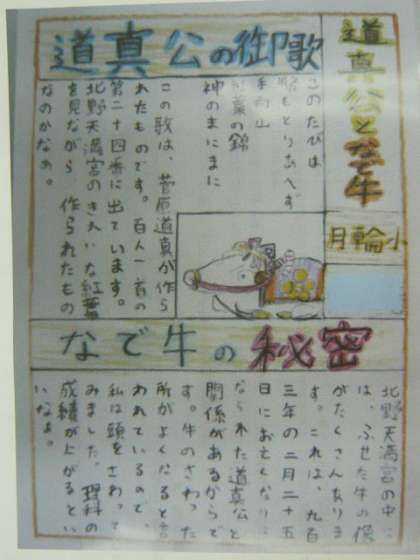 道真公となで牛
月輪小
道真公の御歌
このたびは
ぬさもとりあへず
手向山
紅葉の錦
神のまにまに
この歌は、菅原道真が作ら
れたものです。百人一首の
第二十四番に出ています。
北野天満宮のきれいな紅葉
を見ながら作られたもの
なのかなぁ。
なで牛の秘密
北野天満宮の中に
は、ふせた牛の像
がたくさんありま
す。これは、九百
三年の二月二十五
日にお亡くなりに
なられた道真公と
関係があるからで
す。牛のさわった
所がよくなると言
われているので、
私は頭をさわって
みました。理科の
成績が上がるとい
いなぁ。